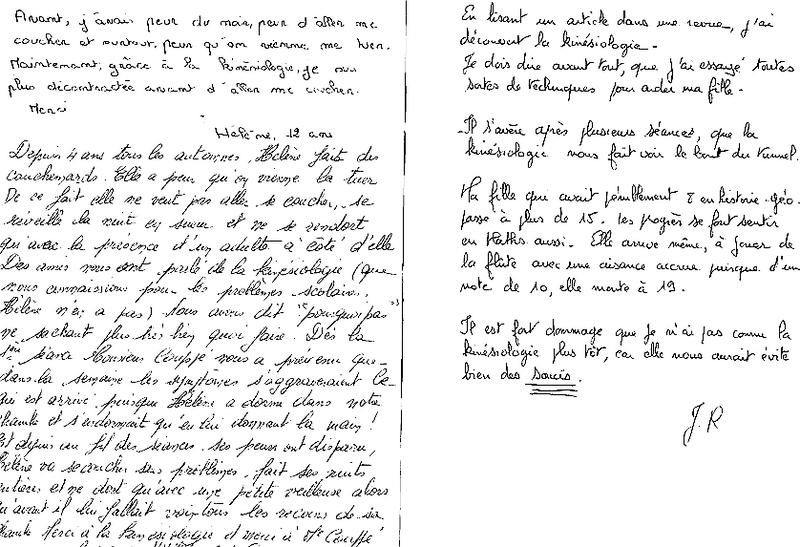 Avant, j'avais peur du noir, peur d'aller me
coucher et surtout, peur qu'on vienne me tuer.
Maintenant, grâce à la kinésiologie, je suis
plus décontractée avant d'aller me coucher.
Merci
Hélène, 12 ans
Depuis 4 ans tous les automnes, Hélène fait des
cauchemards. Elle a peur qu'on vienne la tuer
De ce fait elle ne veut pas aller se coucher, se
réveille la nuit en sueur et ne se rendort
qu'avec la présence d'un adulte à côté d'elle
Des amis nous ont parlé de la kinésiologie (que
nous connaissions pour les problèmes scolaires,
Hélène n'en a pas) nous avons dit "pourquoi pas"
ne sachant plus très bien quoi faire. Dès la
1ère séance Monsieur Couppé nous a prévenu que
dans la semaine les symptômes s'aggraveraient Ce
qui est arrivé puisque Hélène a dormi dans notre
chambre et s'endormait qu'en lui donnant la main !
Et depuis au fil des séances, ses peurs ont disparu,
Hélène va se coucher sans problèmes, fait ses nuits
entières et ne dort qu'avec une petite veilleuse alors
qu'avant il lui fallait toutes les de sa
chambre Merci à la kinésiologie et merci à Mr Couppé
En lisant un article dans une revue, j'ai
découvert la kinésiologie.
Je dois dire avant tout, que j'ai essayé toutes
sortes de techniques pour aider ma fille.
Il s'avère après plusieurs séances, que la
kinésiologie nous fait voir le bout du tunnel.
Ma fille qui avait péniblement 8 en histoire-géo.
passe à plus de 15. les progrès se font sentir
en Maths aussi. Elle arrive même, à jouer de
la flûte avec une aisance accrue puisque d'un
note de 10, elle monte à 19.
Il est fort dommage que je n'ai pas connu la
kinésiologie plus tôt, car elle nous aurait évité
bien des soucis.
J.R